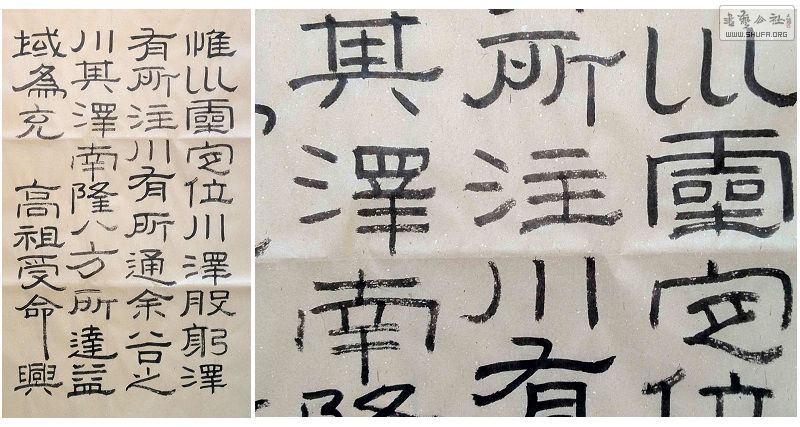 惟巛靈定位川澤股躬澤
有所注川有所通余谷之
川其澤南隆八方所達益
域為充 高祖受命興
巛靈定位
所注川有
其澤南隆
書藝公社
WWW.SHUFA.ORG